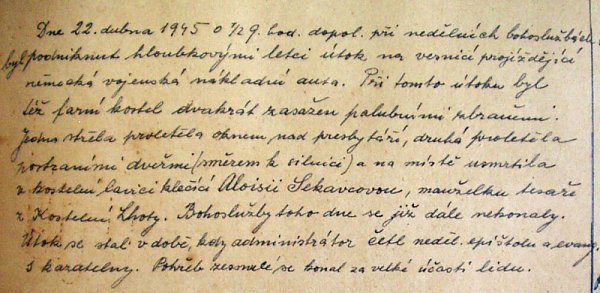 Dne 22. dubna 1945 o ½9. hod. dopol. při nedělních bohoslužbách
byl podniknut hloubkovými letci útok na vesnicí projíždějící
německá vojenská nákladní auta. Při tomto útoku byl
též farní kostel dvakrát zasažen palubními zbraněmi.
Jedna střela proletěla oknem nad presbytáří, druhá proletěla
postranními dveřmi (směrem k silnici) a na místě usmrtila
v kostelní lavici klečící Aloisii Sekavcovou, manželku tesaře
z Kostelní Lhoty. Bohoslužby toho dne se již dále nekonaly.
Útok se stal v době, kdy administrátor četl neděl. epištolu a evang.
s kazatelny. Pohřeb zesnulé se konal za velké účasti lidu.